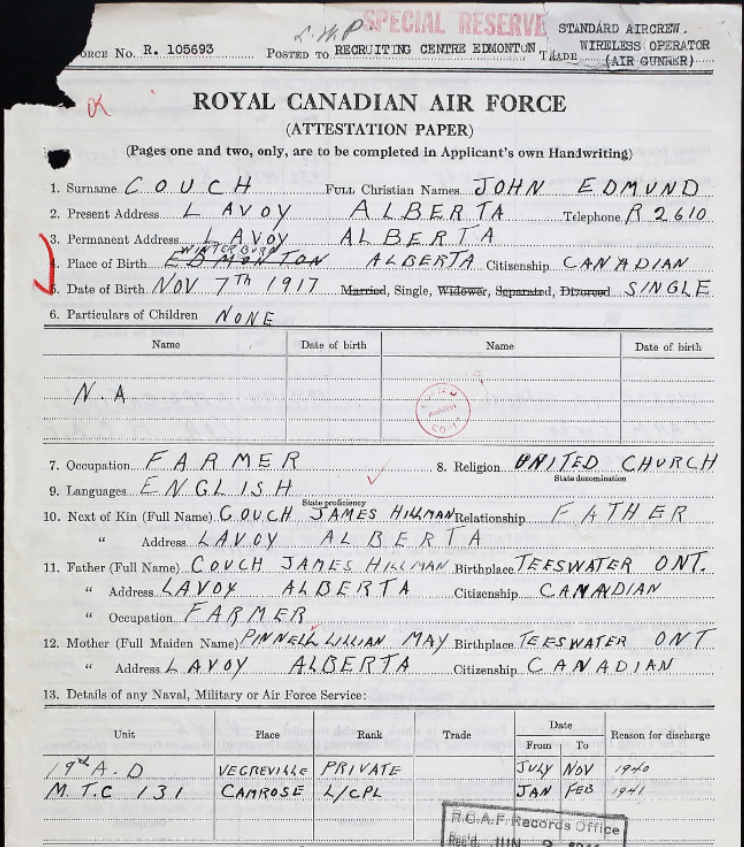 SPECIAL RESERVE
STANDARD AIRCREW.
ORCE NO. R. 105693 POSTED TO RECRUITING CENTRE EDMONTON TRADE WIRELESS OPERATOR
(AIR GUNNER)
ROYAL CANADIAN AIR FORCE
(ATTESTATION PAPER)
(Pages one and two, only, are to be completed in Applicant's own Handwriting)
1. Surname COUCH FULL Christian Names JOHN EDMUND
2. Present Address LAVOY ALBERTA Telephone R 2610
3. Permanent Address LAVOY ALBERTA
WINTERBURN
4. Place of Birth EDMONTON ALBERTA Citizenship CANADIAN
5. Date of Birth NOV 7TH 1917 Married, Single, Widower, Separated, Divorced SINGLE
6. Particulars of Children NONE
Name Date of birth Name Date of birth
N.A
7. Occupation FARMER 8. Religion UNITED CHURCH
State denomination
9. Languages ENGLISH
State proficiency
10. Next of Kin (Full Name) COUCH JAMES HILLMAN Relationship FATHER
" Address LAVOY ALBERTA
11. Father (Full Name) COUCH JAMES HILLMAN Birthplace TEESWATER ONT.
" Address LAVOY ALBERTA Citizenship CANADIAN
" Occupation FARMER
12. Mother (Full Maiden Name) PINNELL LILLIAN MAY Birthplace TEESWATER ONT
" Address LAVOY ALBERTA Citizenship CANADIAN
13. Details of any Naval, Military or Air Force Service:
Unit Place Rank Trade Date From To Reason for discharge
19th A.D VEGREVILLE PRIVATE JULY NOV 1940
M.T.C 131 CAMROSE L/CPL JAN FEB 1941
R.C.A.F. Records Office
Rec'd. JUN 3